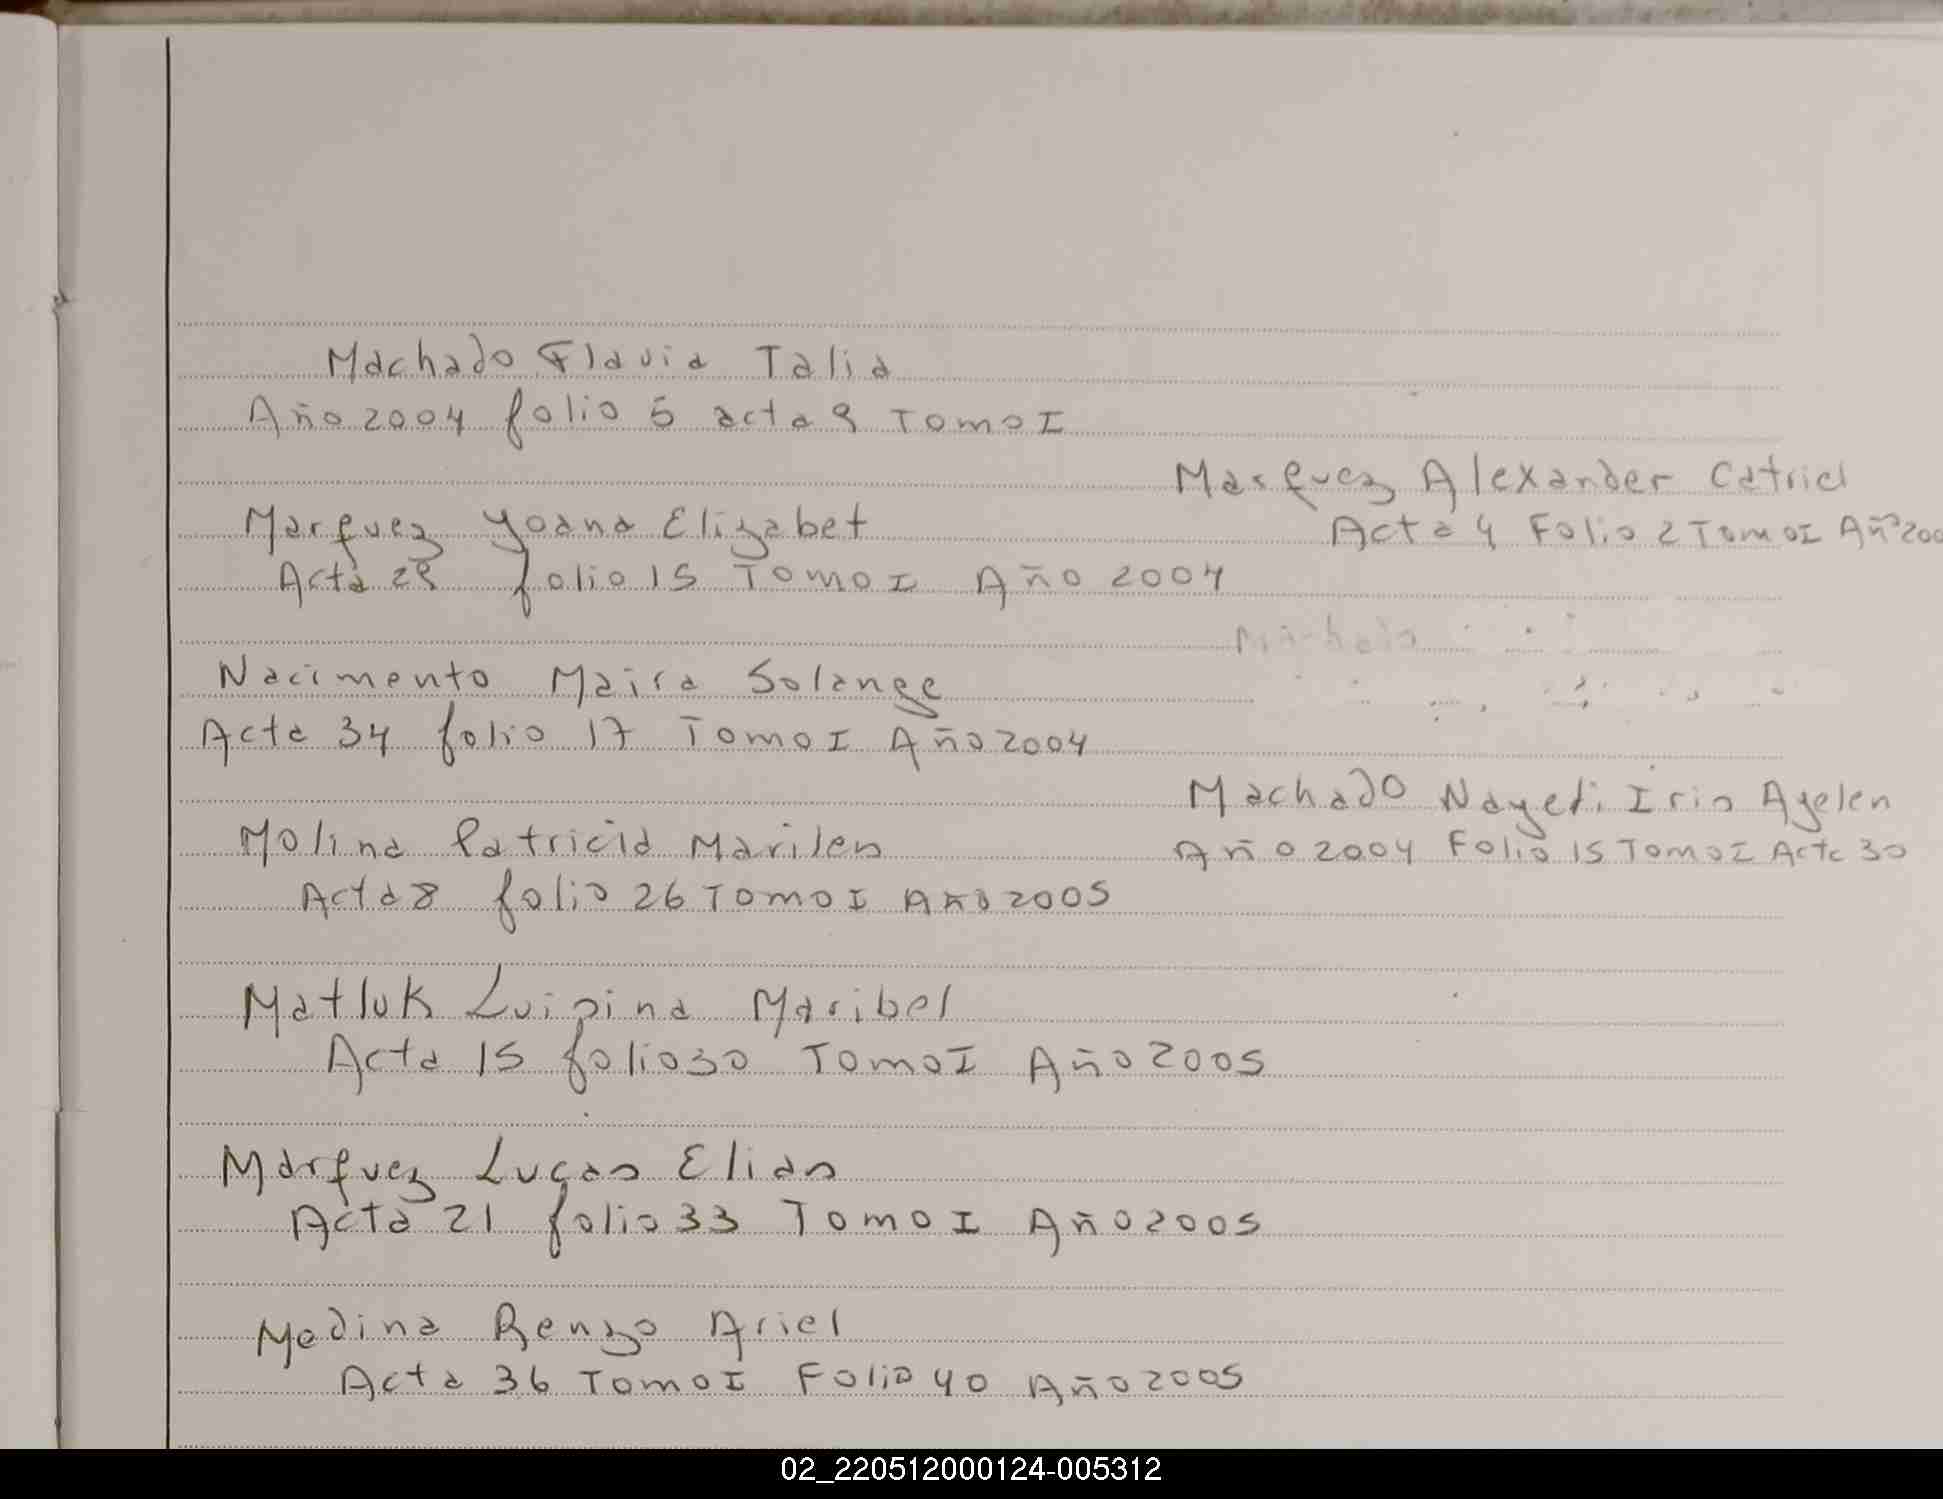 Machado Flavia Talia
Año 2004 folio 5 acta 9 Tomo I
Marquez Alexander Catriel
Acta 4 Folio 2 Tomo I Año 200
Marquez Yoana Elizabet
Acta 28 folio 15 Tomo I Año 2004
Nacimento Maira Solange
Acta 34 folio 17 Tomo I Año 2004
Machado Nayeli Iris Ayelen
Año 2004 Folio 15 Tomo I Acta 30
Molina Patricia Marilen
Acta 8 folio 26 Tomo I Año 2005
Matluk Luisina Maribel
Acta 15 folio 30 Tomo I Año 2005
Marquez Lucas Elias
Acta 21 folio 33 Tomo I Año 2005
Medina Renzo Ariel
Acta 36 Tomo I Folio 40 Año 2005
02_220512000124-005312